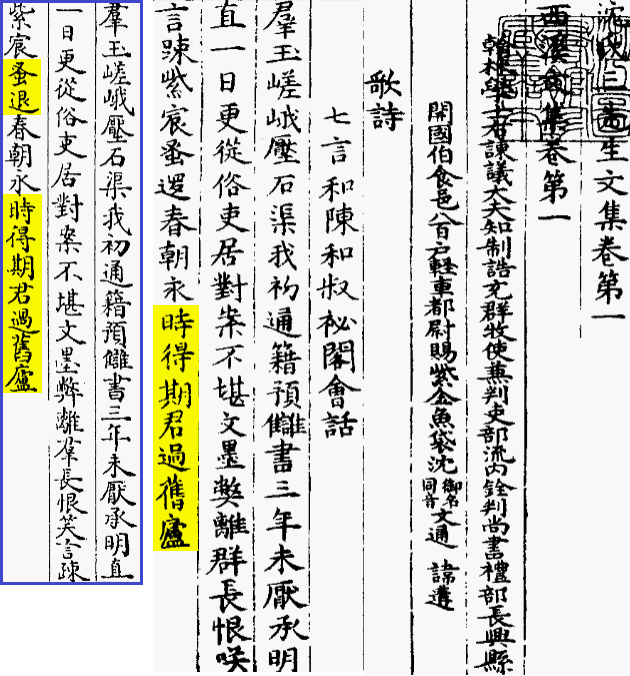 沈氏三先生文集卷第一
西溪文集卷第一
翰林學士右諫議大夫知制誥充群牧使兼判吏部流內銓判尚書禮部長興縣
開國伯食邑八百戶輕車都尉賜紫金魚袋沈御名同音文通諱遘
歌詩
七言和陳和叔祕閣會話
羣玉嵯峨壓石渠我初通籍預讎書三年未厭承明
直一日更從俗吏居對案不堪文墨弊離群長恨咲
言踈紫宸蚤退春朝永時得期君過舊廬
羣玉嵯峨壓石渠我初通籍預讎書三年未厭承明直
一日更從俗吏居對案不堪文墨弊離羣長恨笑言踈
紫宸蚤退春朝永時得期君過舊廬